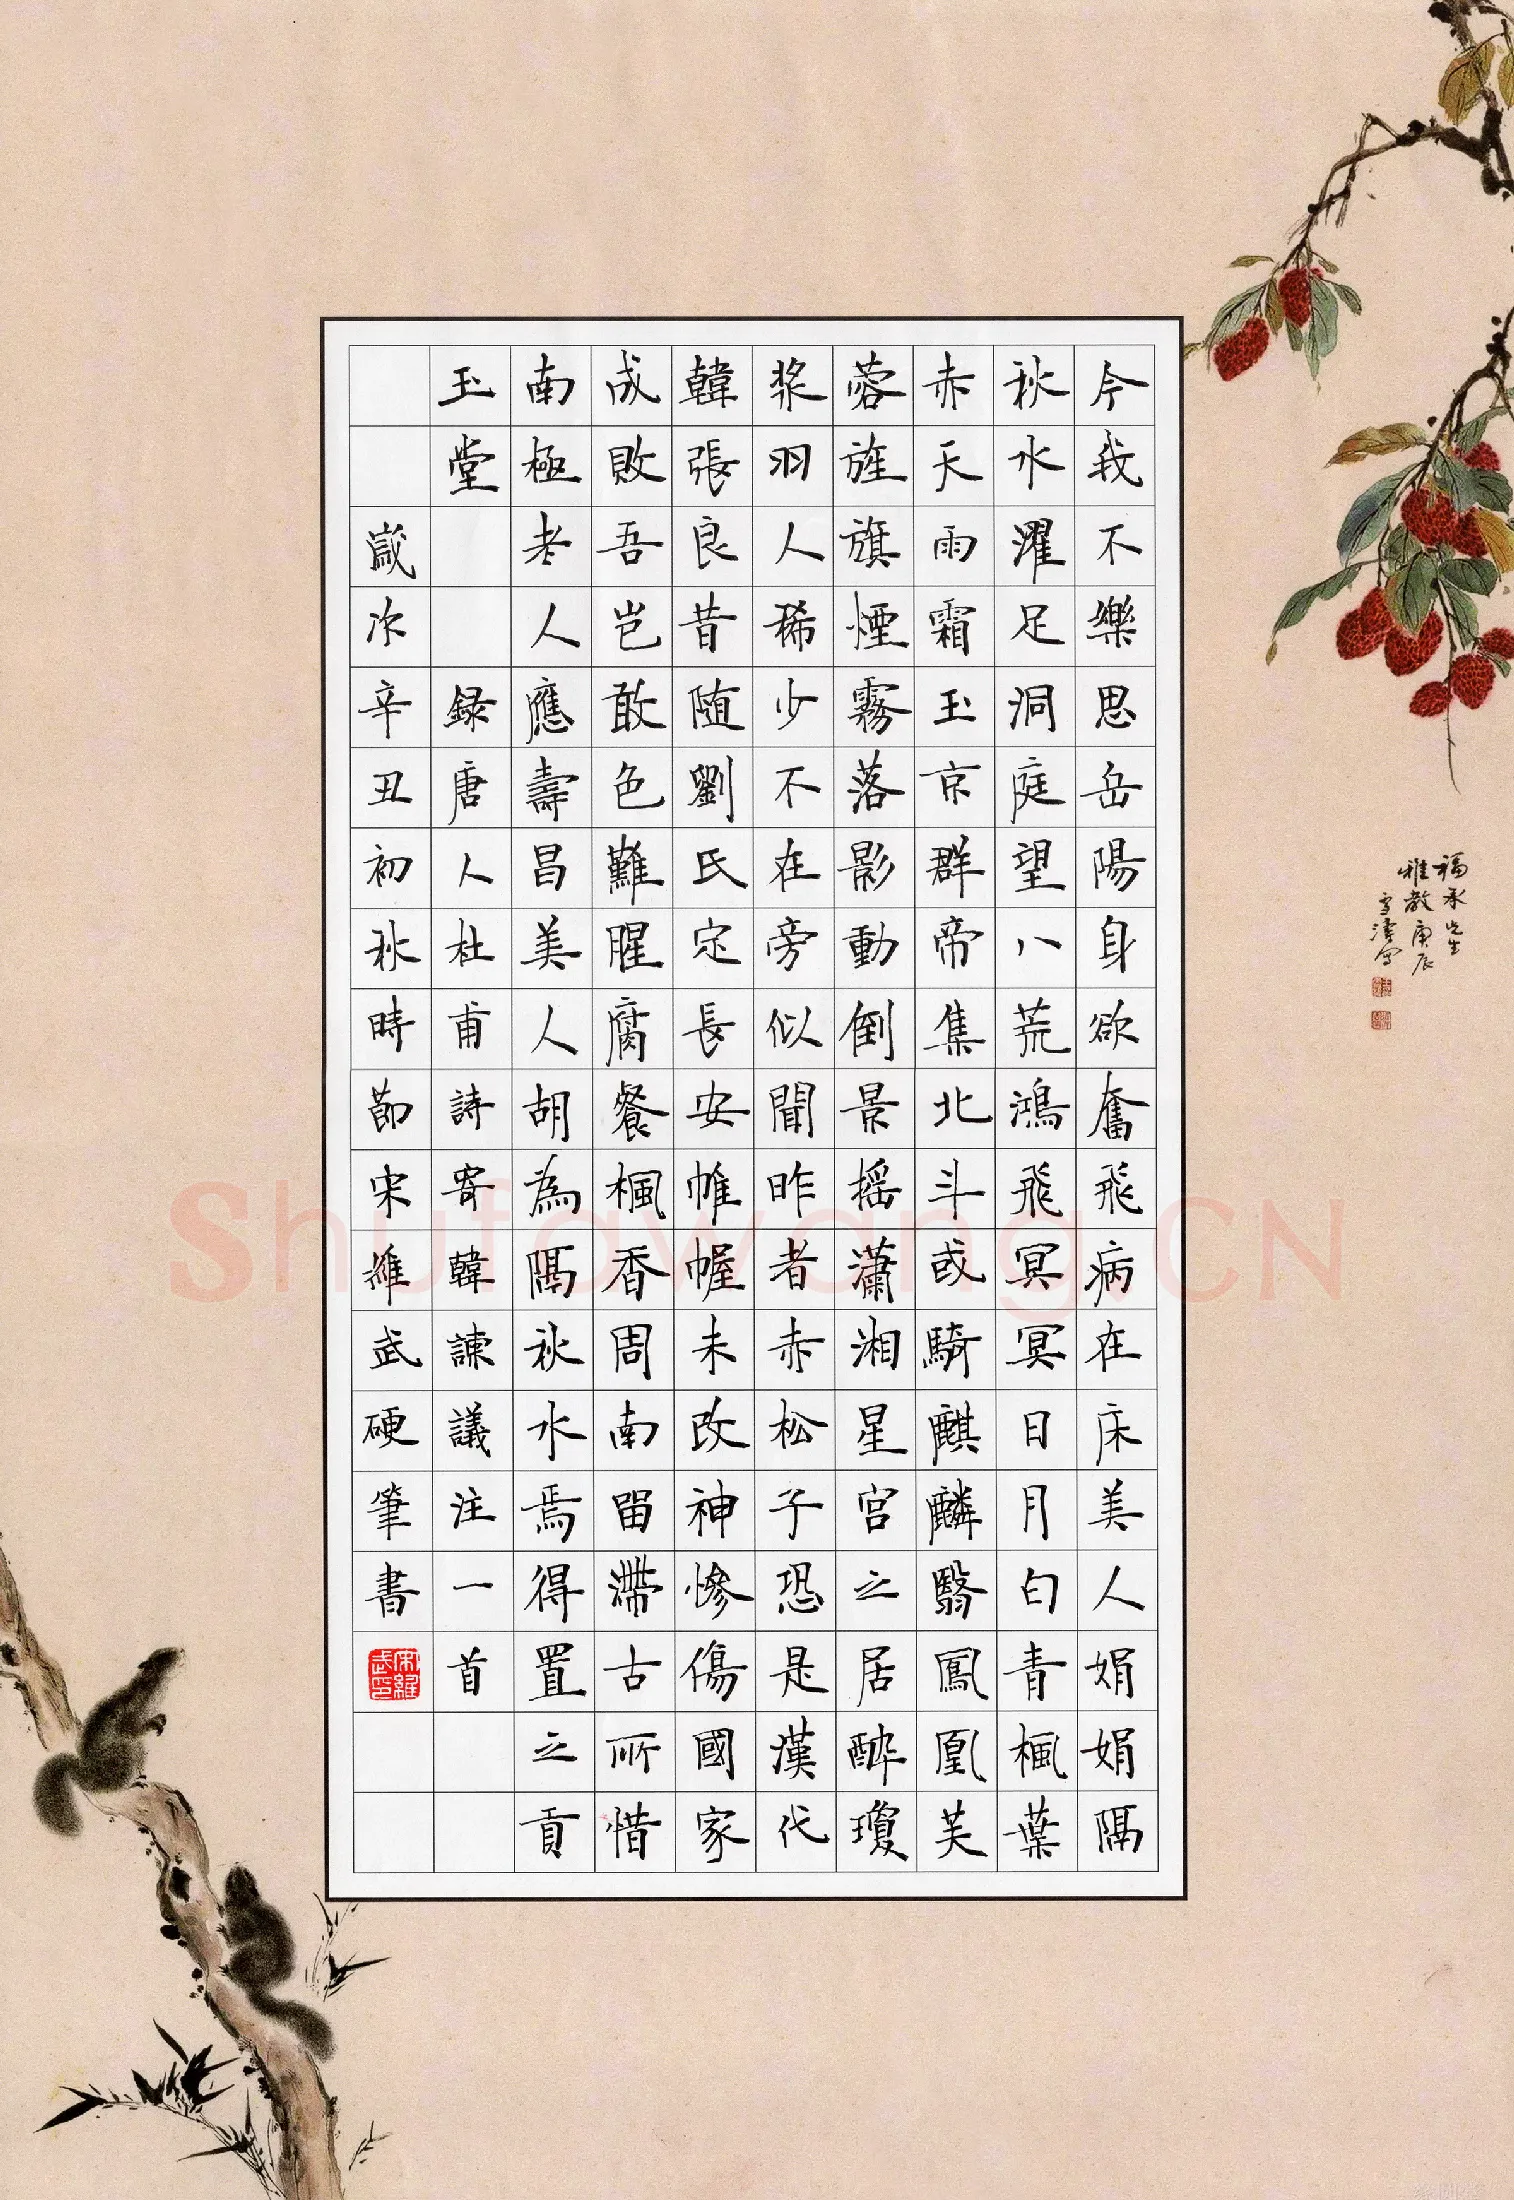 今我不樂思岳陽身欲奮飛病在床美人娟娟隔
秋水濯足洞庭望八荒鴻飛冥冥日月白青楓葉
赤天雨霜玉京群帝集北斗或騎麒麟翳鳳凰芙
蓉旌旗煙霧落影動倒景摇瀟湘星宮之居醉瓊
漿羽人稀少不在旁似聞昨者赤松子恐是漢代
韓張良昔随劉氏定長安帷幄未改神慘傷國家
成敗吾豈敢色難腥腐餐楓香周南留滯古所惜
南極老人應壽昌美人胡為隔秋水焉得置之貢
玉堂 録唐人杜甫詩寄韓諫議注一首
歲次辛丑初秋時節宋維武硬筆書
宋維武印
福承先生
雅教 庚辰
雪濤寫
Shufawang.CN